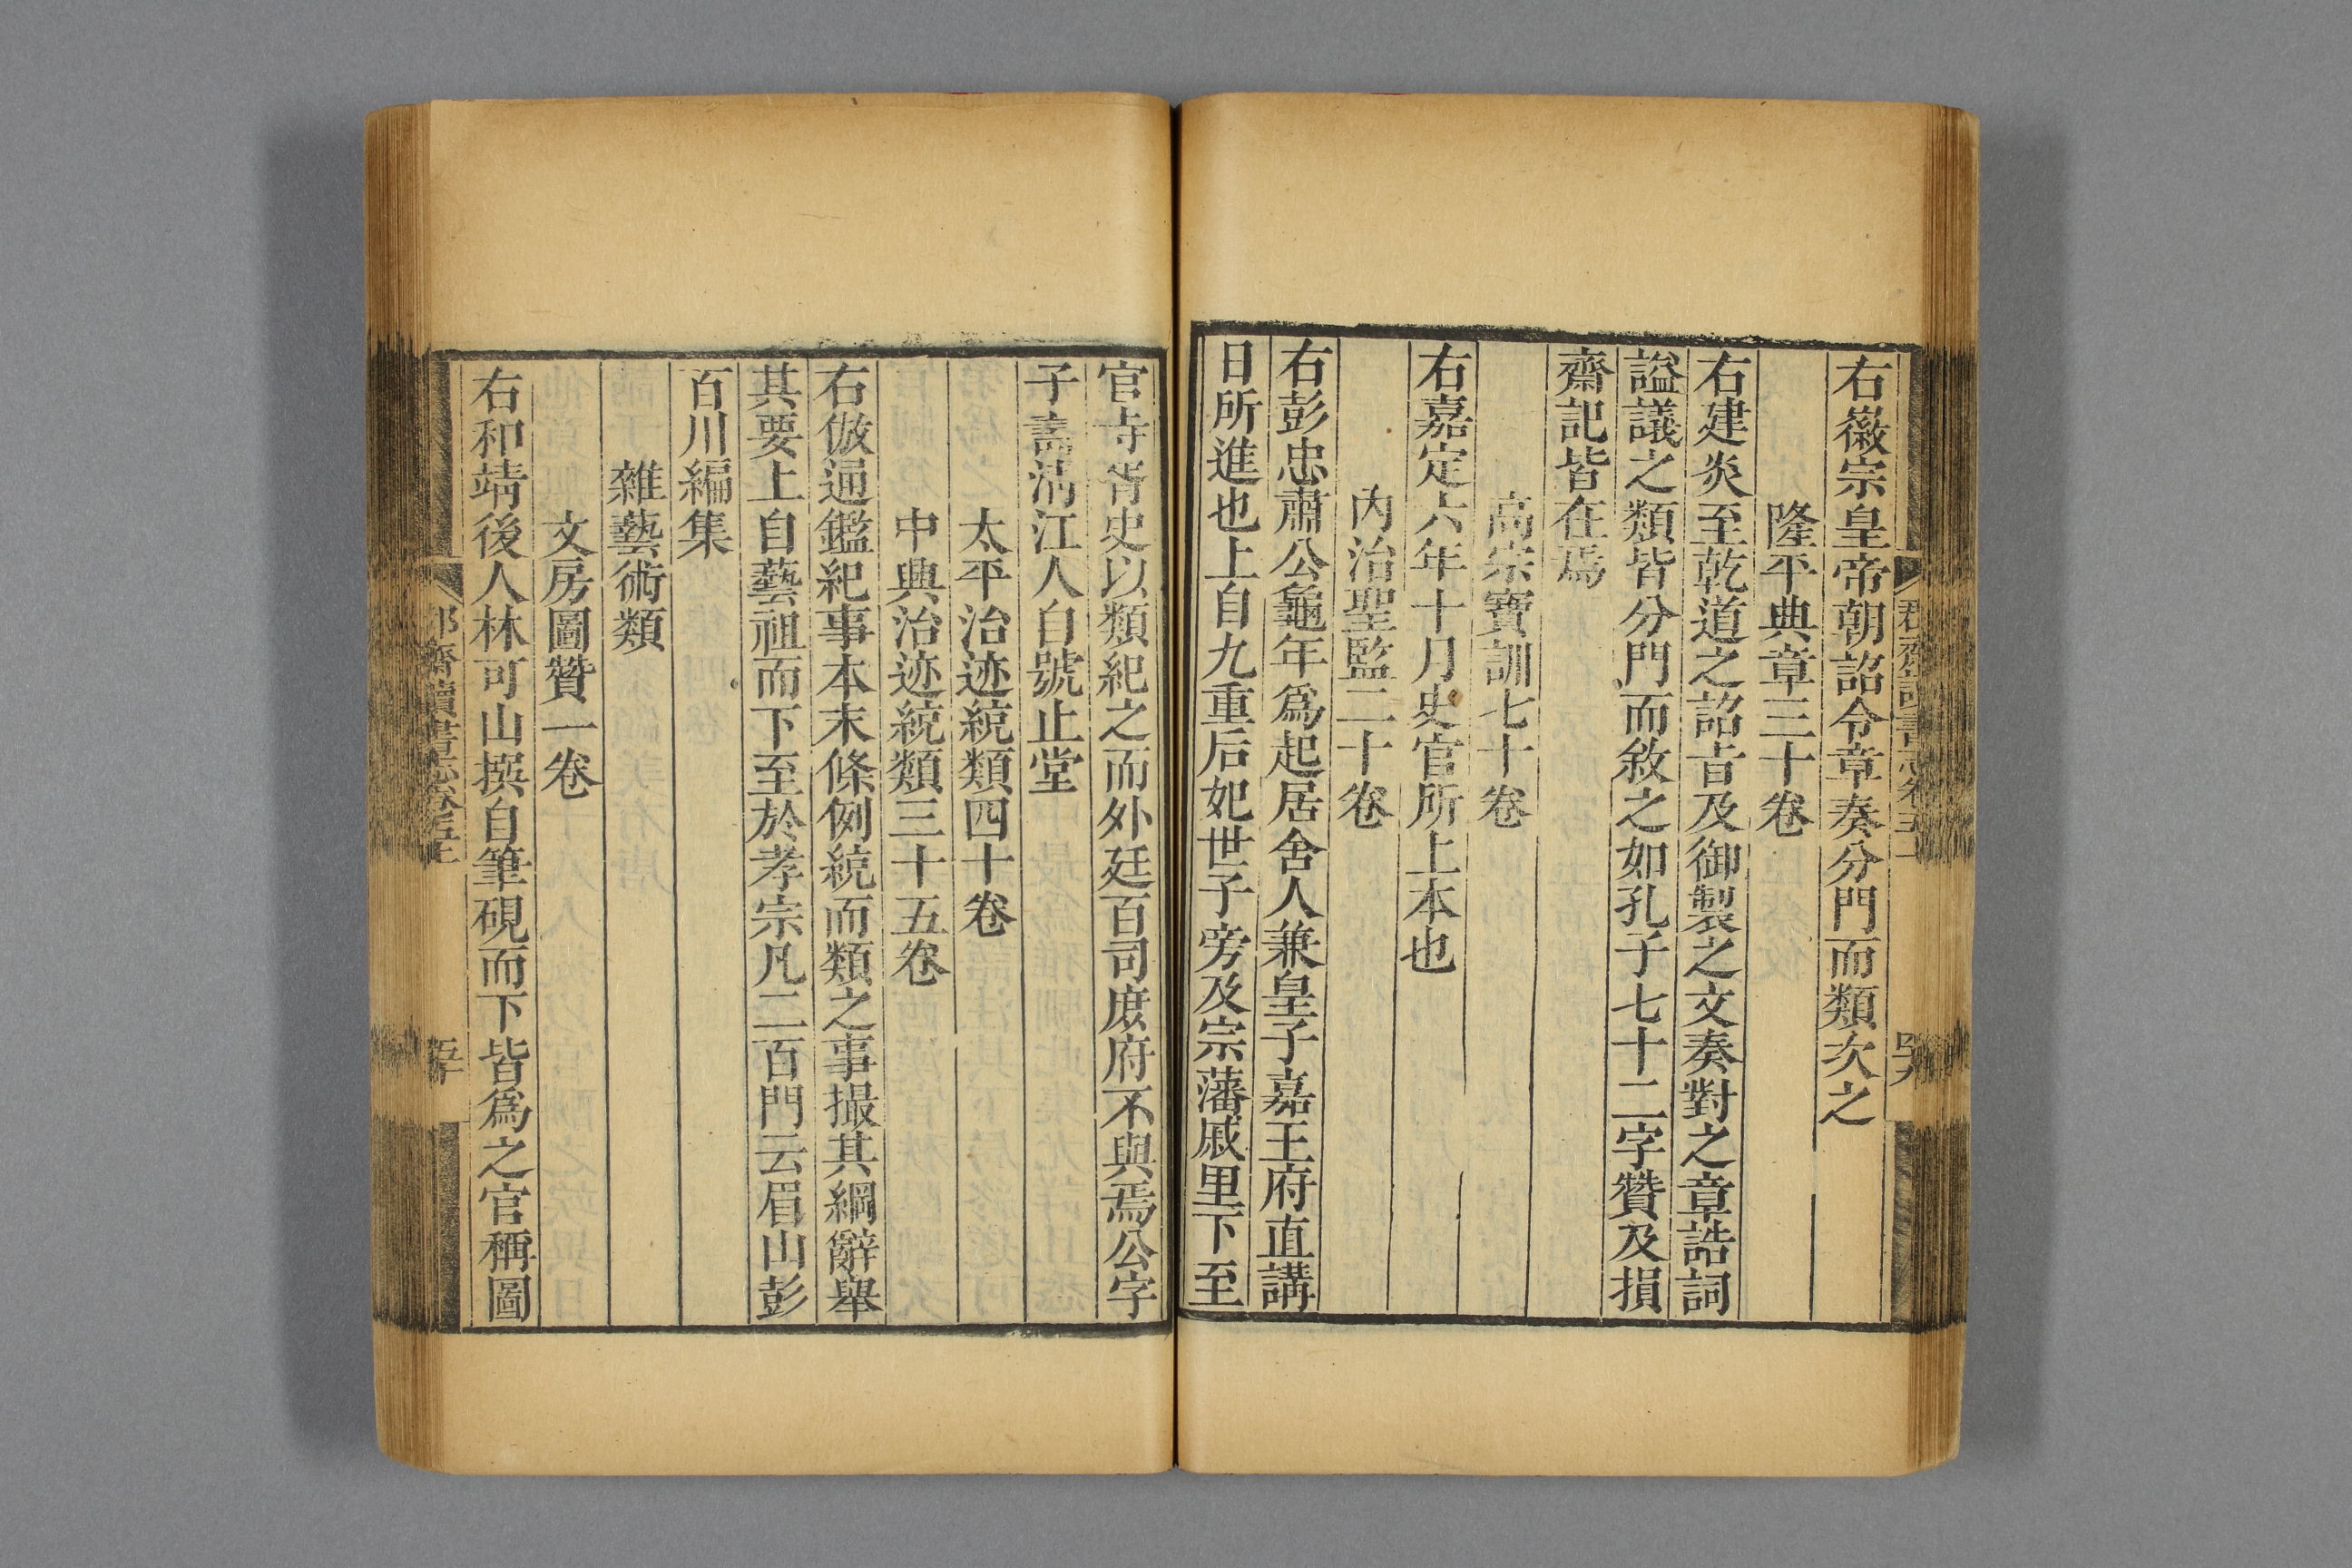 右徽宗皇帝朝詔令章奏分門而類次之
隆平典章三十卷
右建炎至乾道之詔旨及御製之文奏對之章誥詞
謚議之類皆分門而敘之如孔子七十二字贊及損
齋記皆在焉
高宗寶訓七十卷
右嘉定六年十月史官所上本也
內治聖監二十卷
右彭忠肅公龜年爲起居舍人兼皇子嘉王府直講
日所進也上自九重后妃世子旁及宗藩戚里下至
官寺胥史以類紀之而外廷百司庶府不與焉公字
子壽清江人自號止堂
太平治迹統類四十卷
中興治迹統類三十五卷
右倣通鑑紀事本末條例統而類之事撮其綱辭舉
其要上自藝祖而下至於孝宗凡二百門云眉山彭
百川編集
雜藝術類
文房圖贊一卷
右和靖後人林可山撰自筆硯而下皆爲之官稱圖